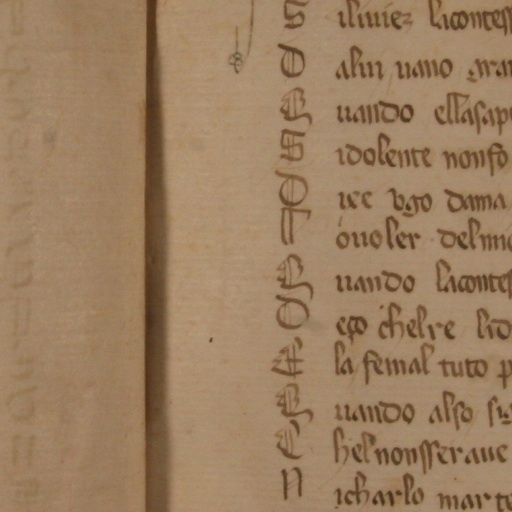 S iliuiez lacontess
D alui uano gran
Q uando ellasap
S idolente nonfo
D iee vgo dama
I ouoler delmio
Q uando lacontes
D eço chelre lid
E la femal tuto p
Q uando also si
C helnonsserauc
N icharlo marte